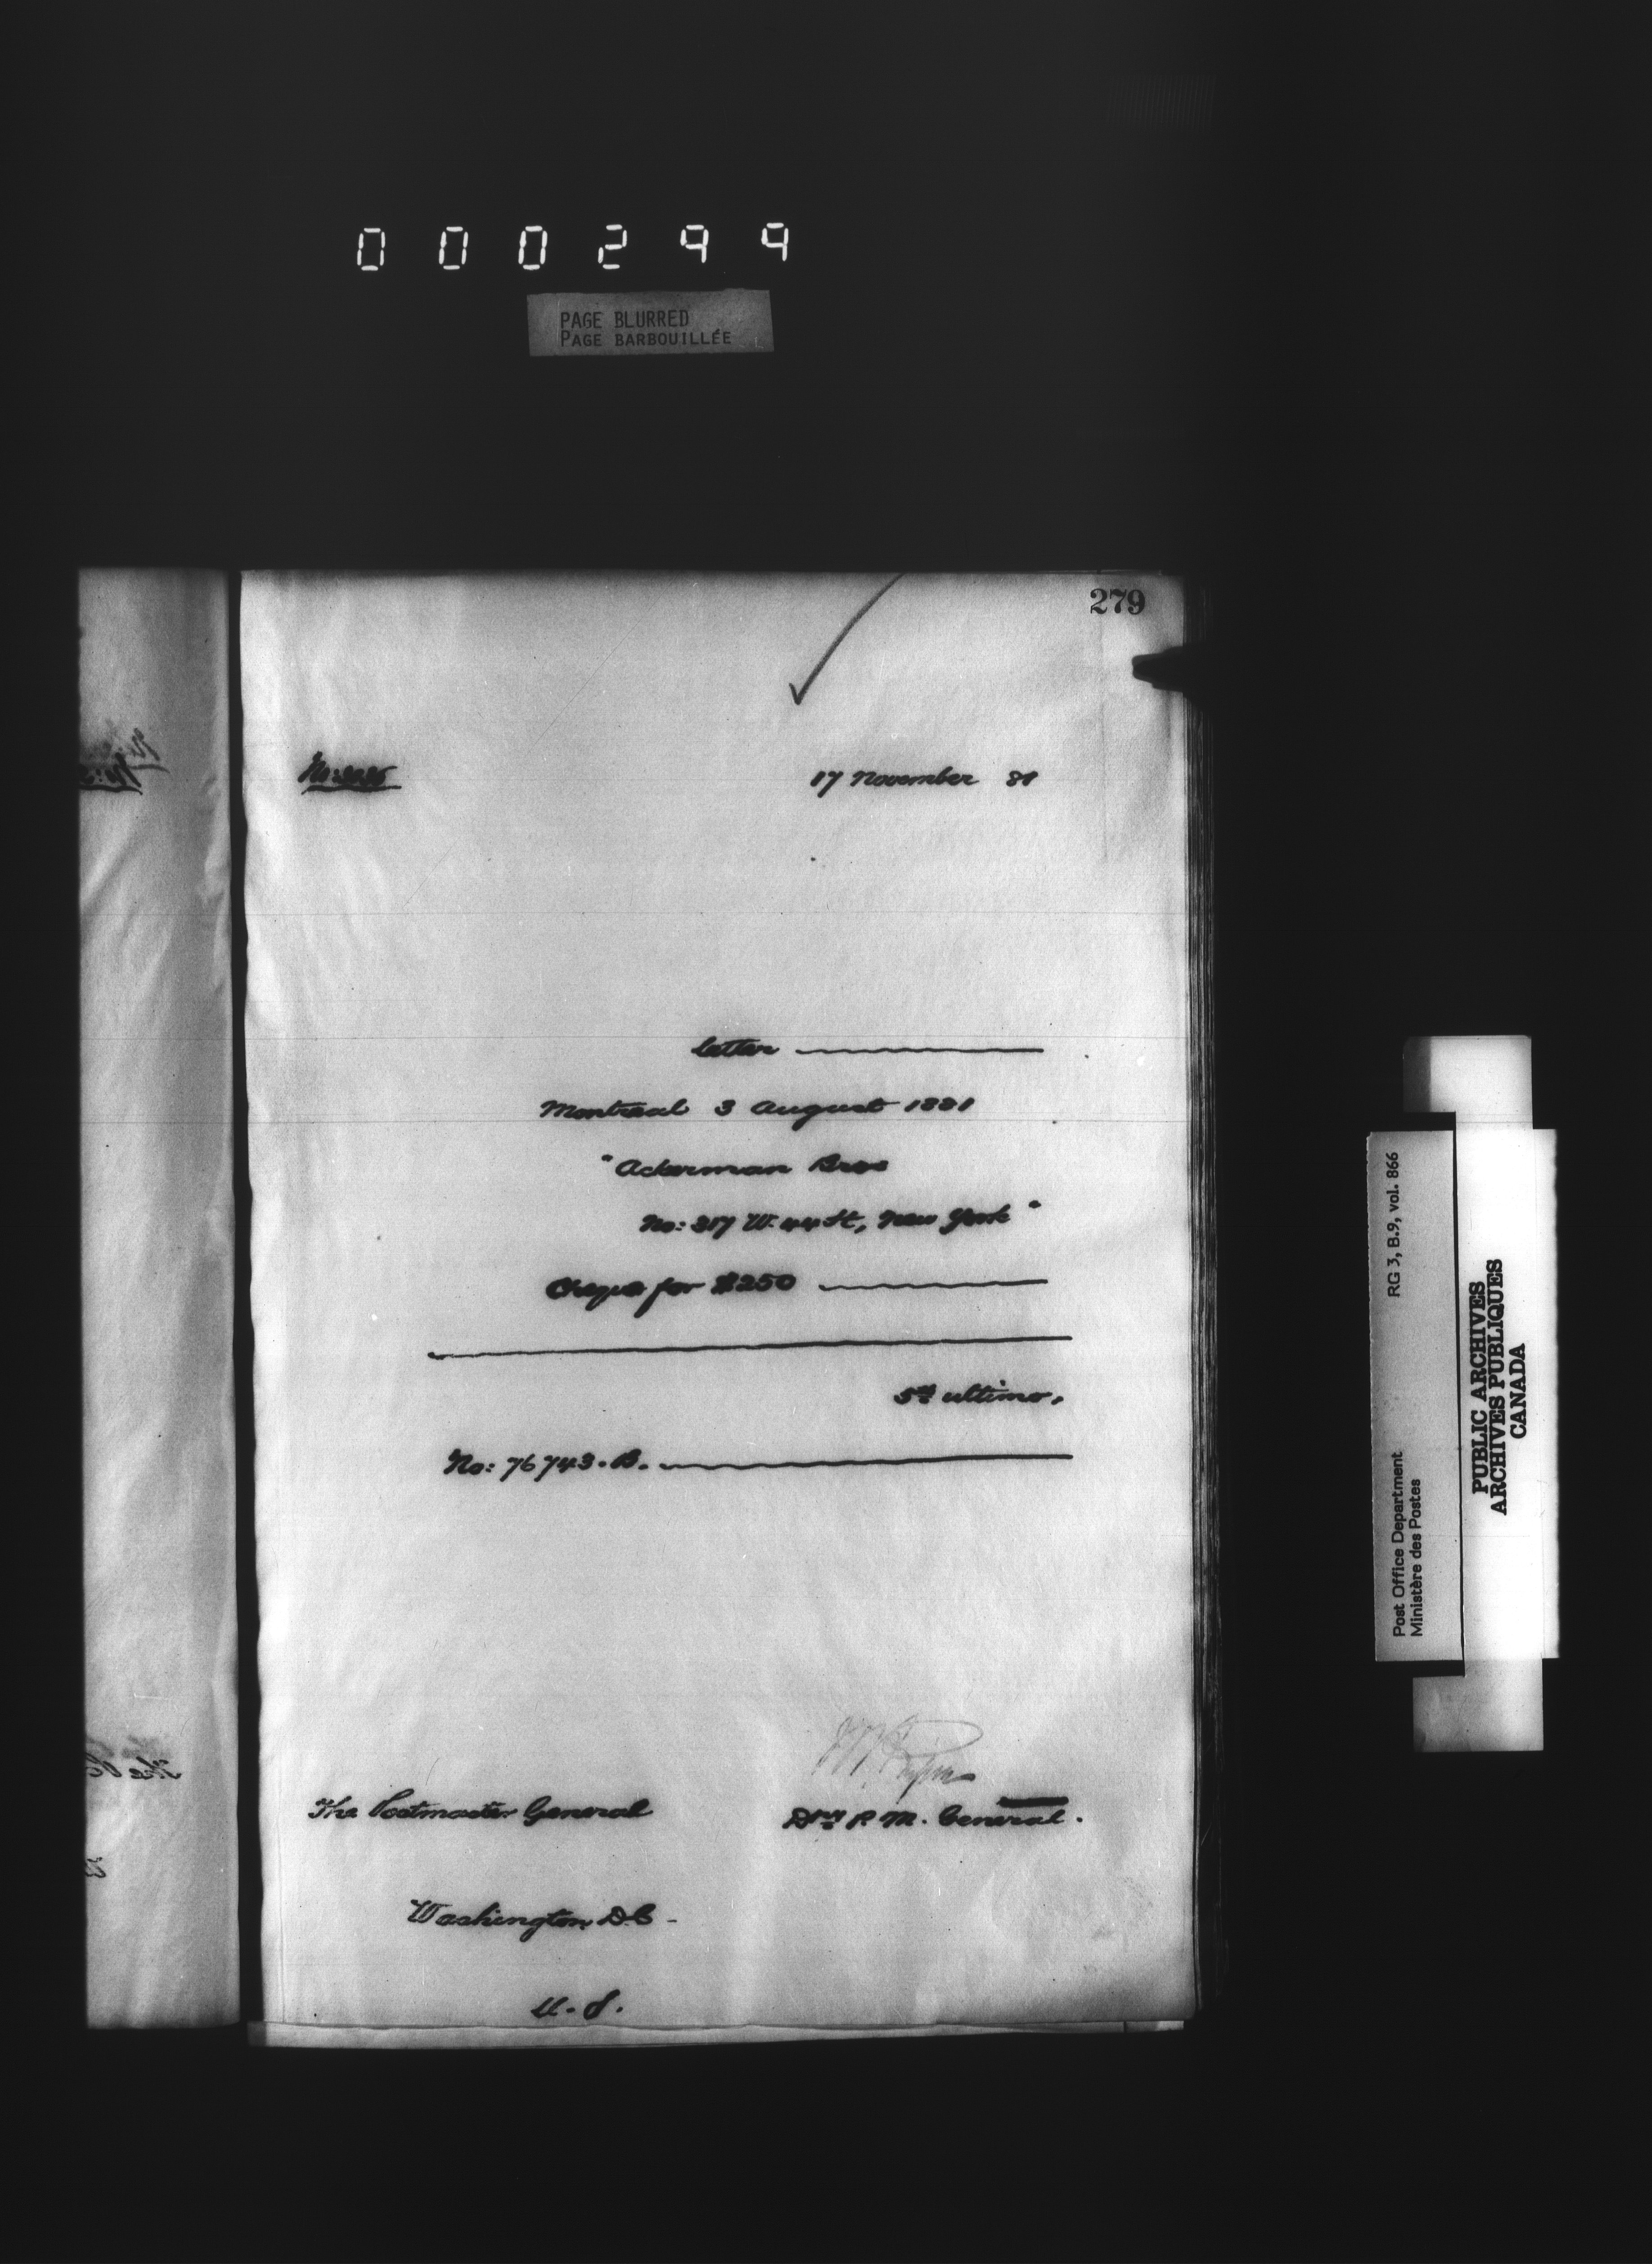 000299
PAGE BLURRED
PAGE BARBOUILLÉE
279
17 November 81
letter
Montreal 3 August 1881
"Ackerman Bros
No: 317 W. 44 St, New York"
Cheque for $250
5th ultimo,
No: 76743. B.
The Postmaster General
Dy P. M. General.
Washington D.C -
U. S.
Post Office Department RG 3, B.9, vol. 866
Ministère des Postes
PUBLIC ARCHIVES
ARCHIVES PUBLIQUES
CANADA